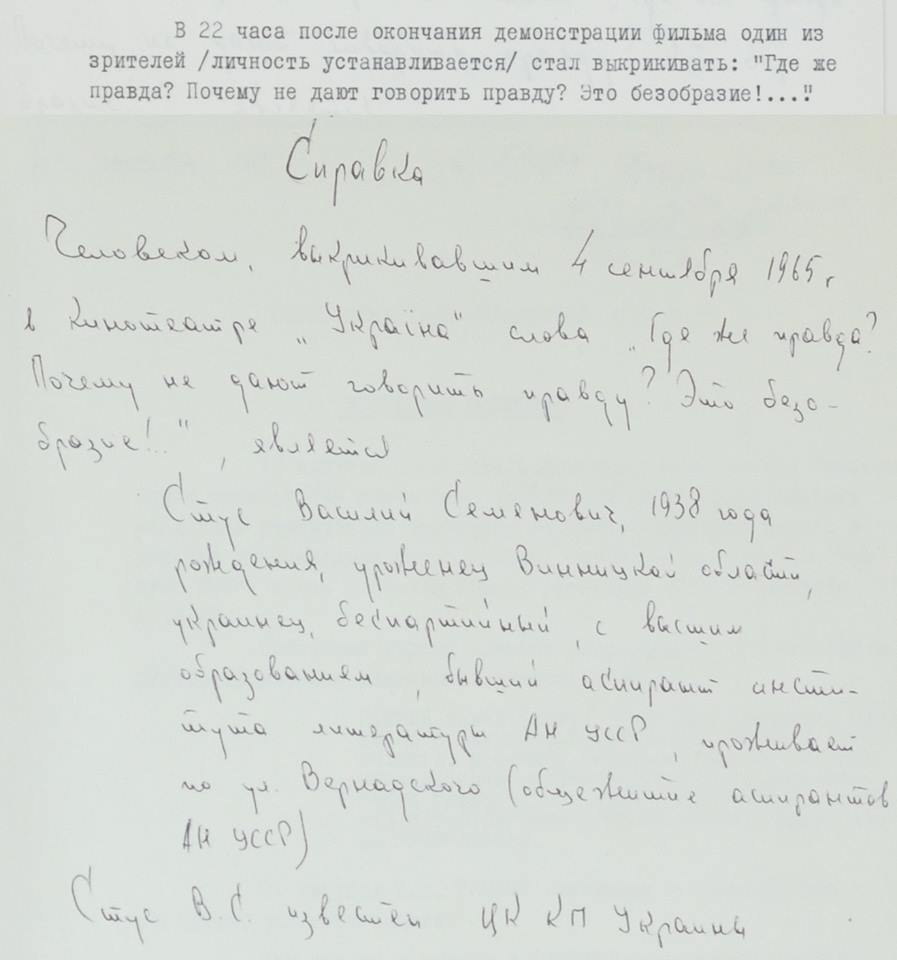 В 22 часа после окончания демонстрации фильма один из
зрителей /личность устанавливается/ стал выкрикивать: "Где же
правда? Почему не дают говорить правду? Это безобразие!..."
Справка
Человеком, выкрикивавшим 4 сентября 1965 г
в кинотеатре „Україна" слова „Где же правда?
Почему не дают говорить правду? Это безо-
бразие!..", является
Стус Василий Семенович, 1938 года
рождения, уроженец Винницкой области,
украинец, беспартийный, с высшим
образованием, бывший аспирант инсти-
тута литературы АН УССР, проживает
по ул. Вернадского (общежитие аспирантов
АН УССР)
Стус В.С. известен ЦК КП Украины